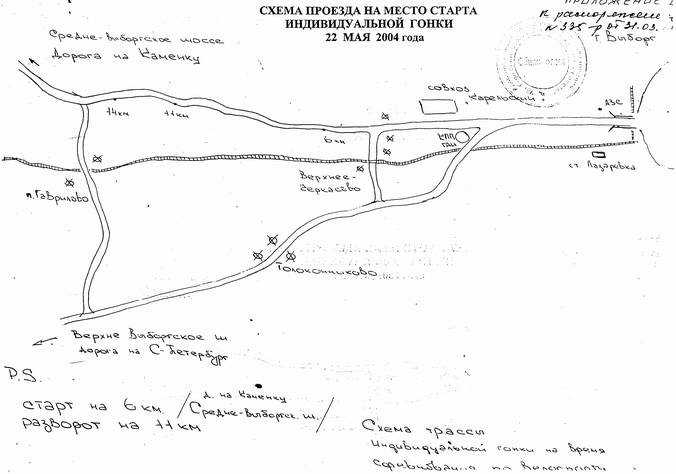 СХЕМА ПРОЕЗДА НА МЕСТО СТАРТА
ИНДИВИДУАЛЬНОЙ ГОНКИ
22 МАЯ 2004 года
ПРИЛОЖЕНИЕ
к
г. Выборг
Средне-Выборгское шоссе
Дорога на Каменку
совхоз
Карельский
АЗС
14км
11км
6 км
КПП
ГАИ
ст. Лазаревка
п. Гаврилово
Верхнее-
Черкасово
Толоконниково
Верхне Выборгское ш.
дорога на С-Петербург
P.S.
старт на 6 км. / д. на Каменку
Средне-Выборгск. ш. /
разворот на 11 км
Схема трассы
индивидуальной гонки на время